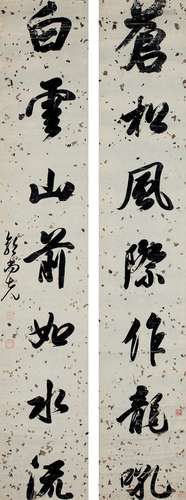 蒼松風際作龍吼
白雲山前如水流
郭尚先